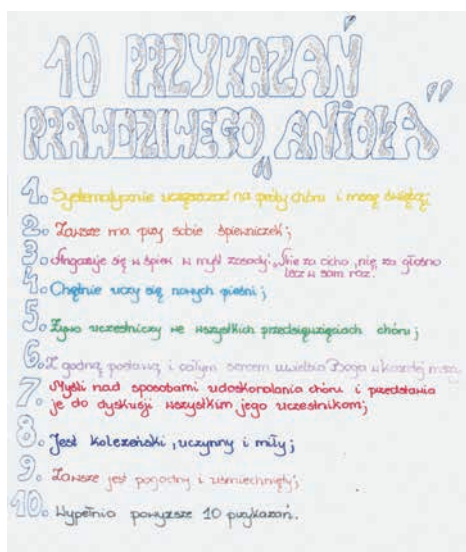 10 PRZYKAZAŃ
PRAWDZIWEGO „ANIOŁA”
1. Systematycznie uczęszczać na próby chóru i mszę świętą;
2. Zawsze ma przy sobie śpiewniczek;
3. Angażuje się w śpiew w myśl zasady: „Nie za cicho, nie za głośno
lecz w sam raz”.
4. Chętnie uczy się nowych pieśni;
5. Żywo uczestniczy we wszystkich przedsięwzięciach chóru;
6. Z godną postawą i całym sercem uwielbia Boga w każdej mszy.
7. Myśli nad sposobami udoskonalania chóru i przedstawia
je do dyskusji wszystkim jego uczestnikom;
8. Jest koleżeński, uczynny i miły;
9. Zawsze jest pogodny i uśmiechnięty;
10. Wypełnia powyższe 10 przykazań.